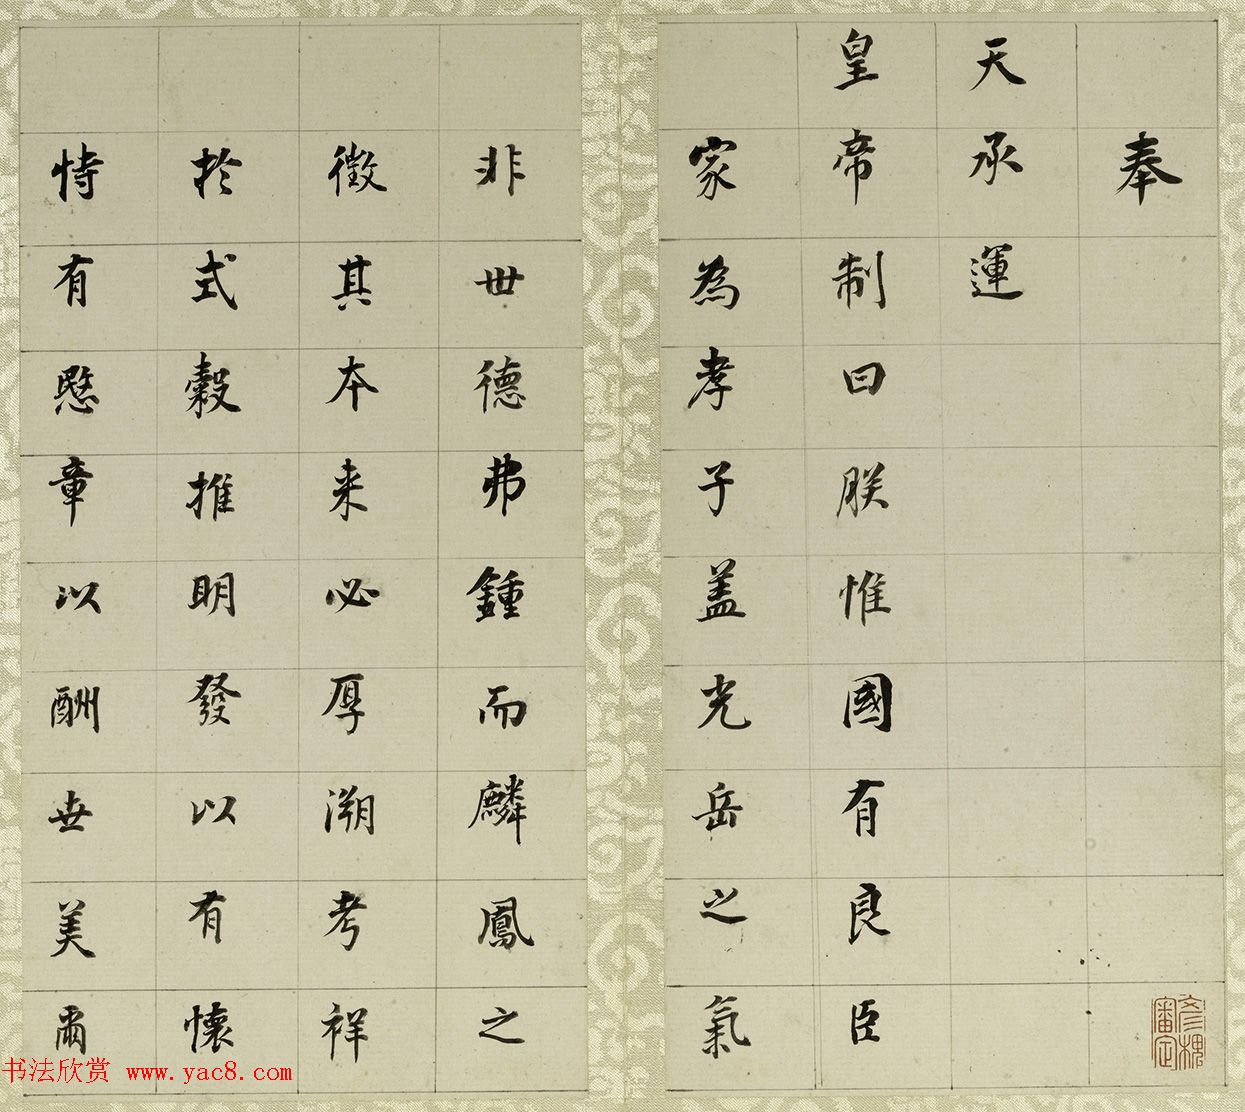 奉
天承運
皇帝制曰朕惟國有良臣
家為孝子盖光岳之氣
非世德弗鍾而麟鳳之
徵其本来必厚溯考祥
於式榖推明發以有懷
恃有愍章以酬世美爾
審定
书法欣赏 www.yac8.com